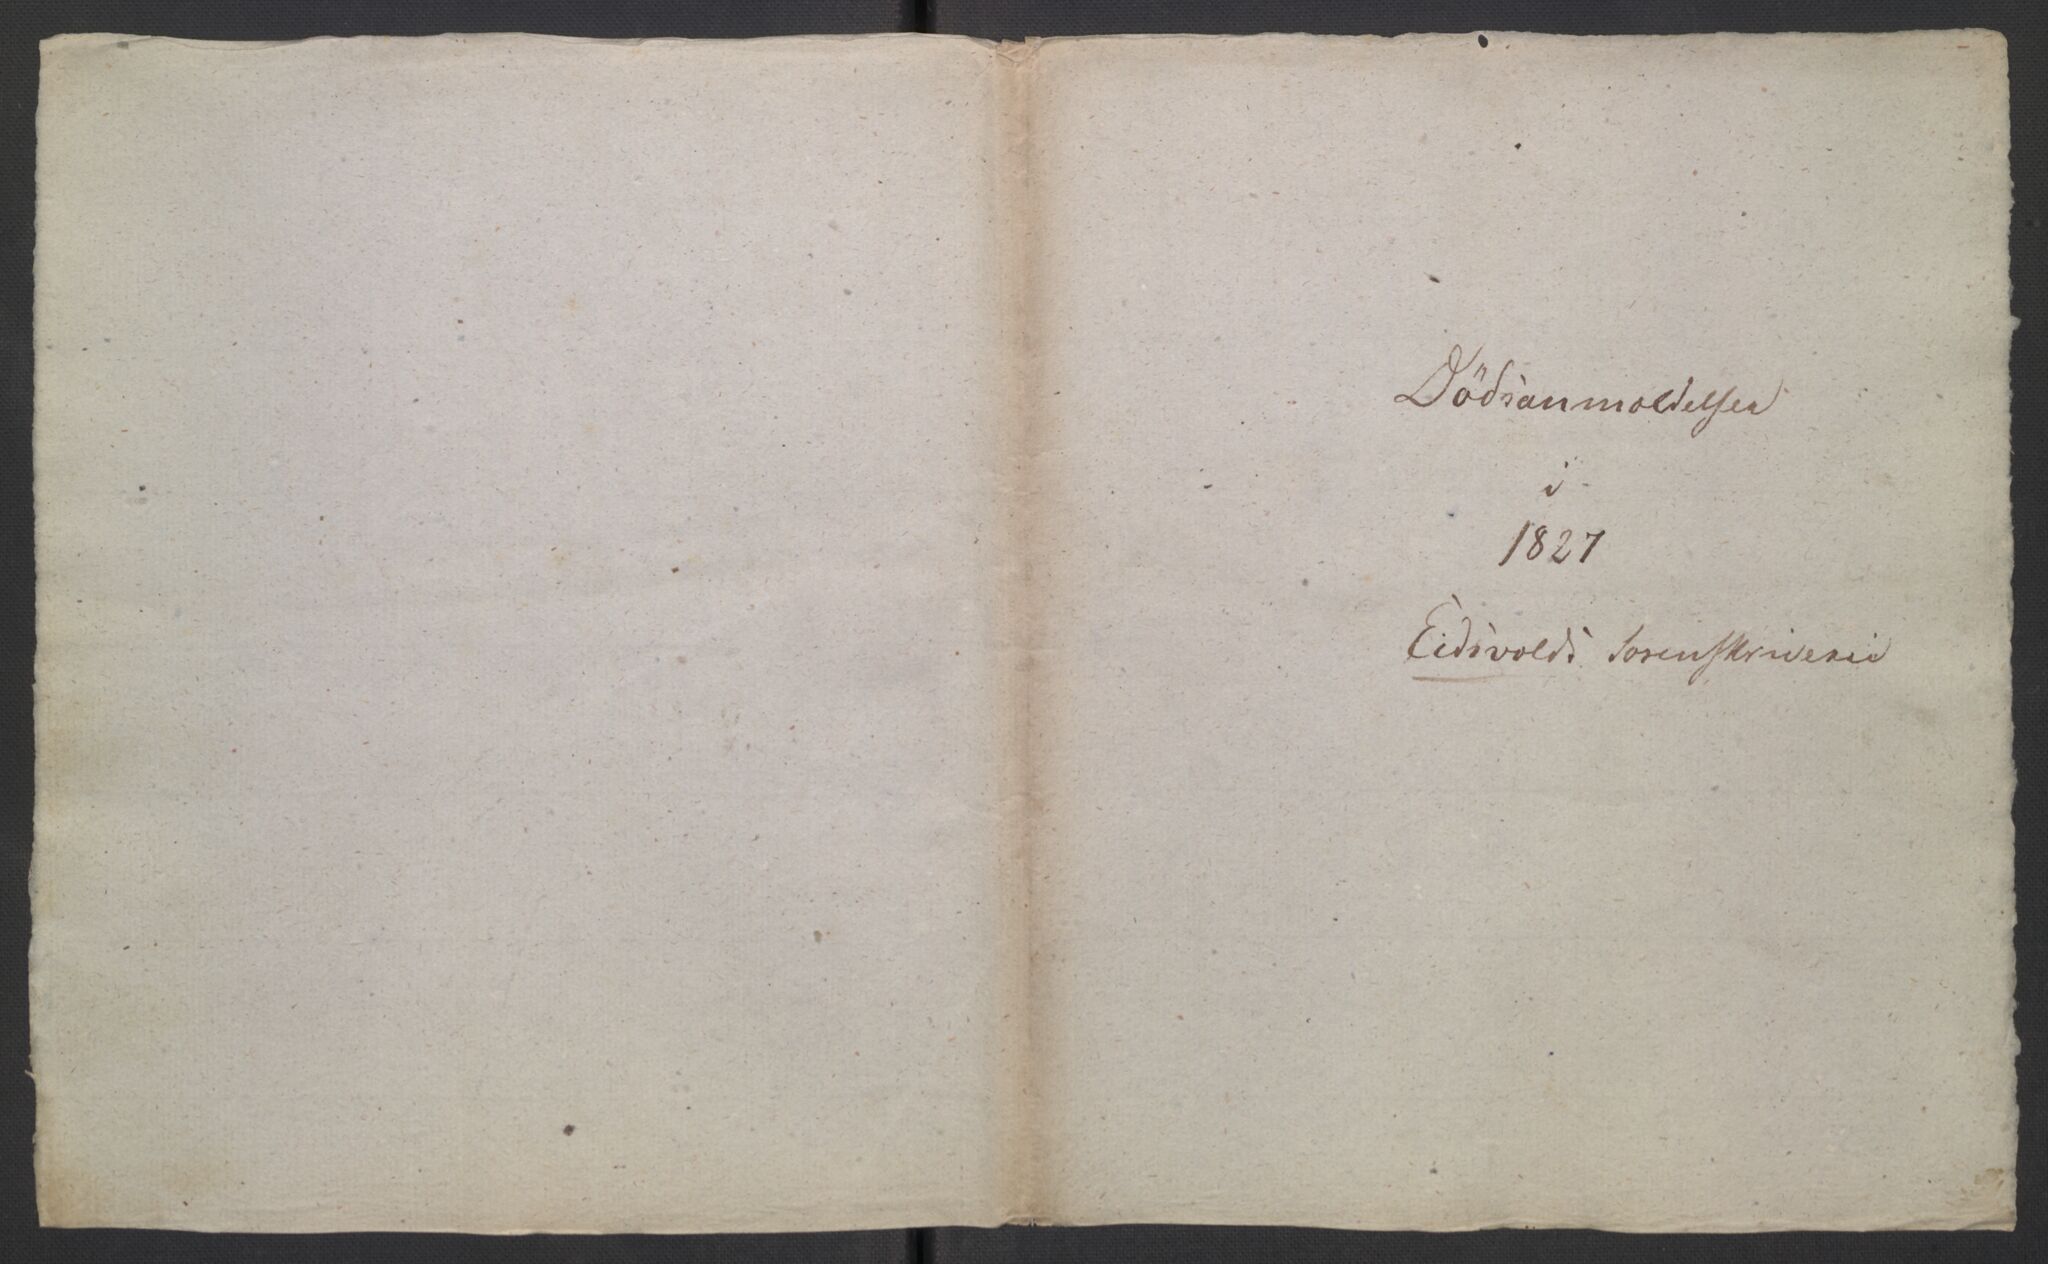 Dödsanmeldelser
i
1827
Eidsvolds Sorenskriverie